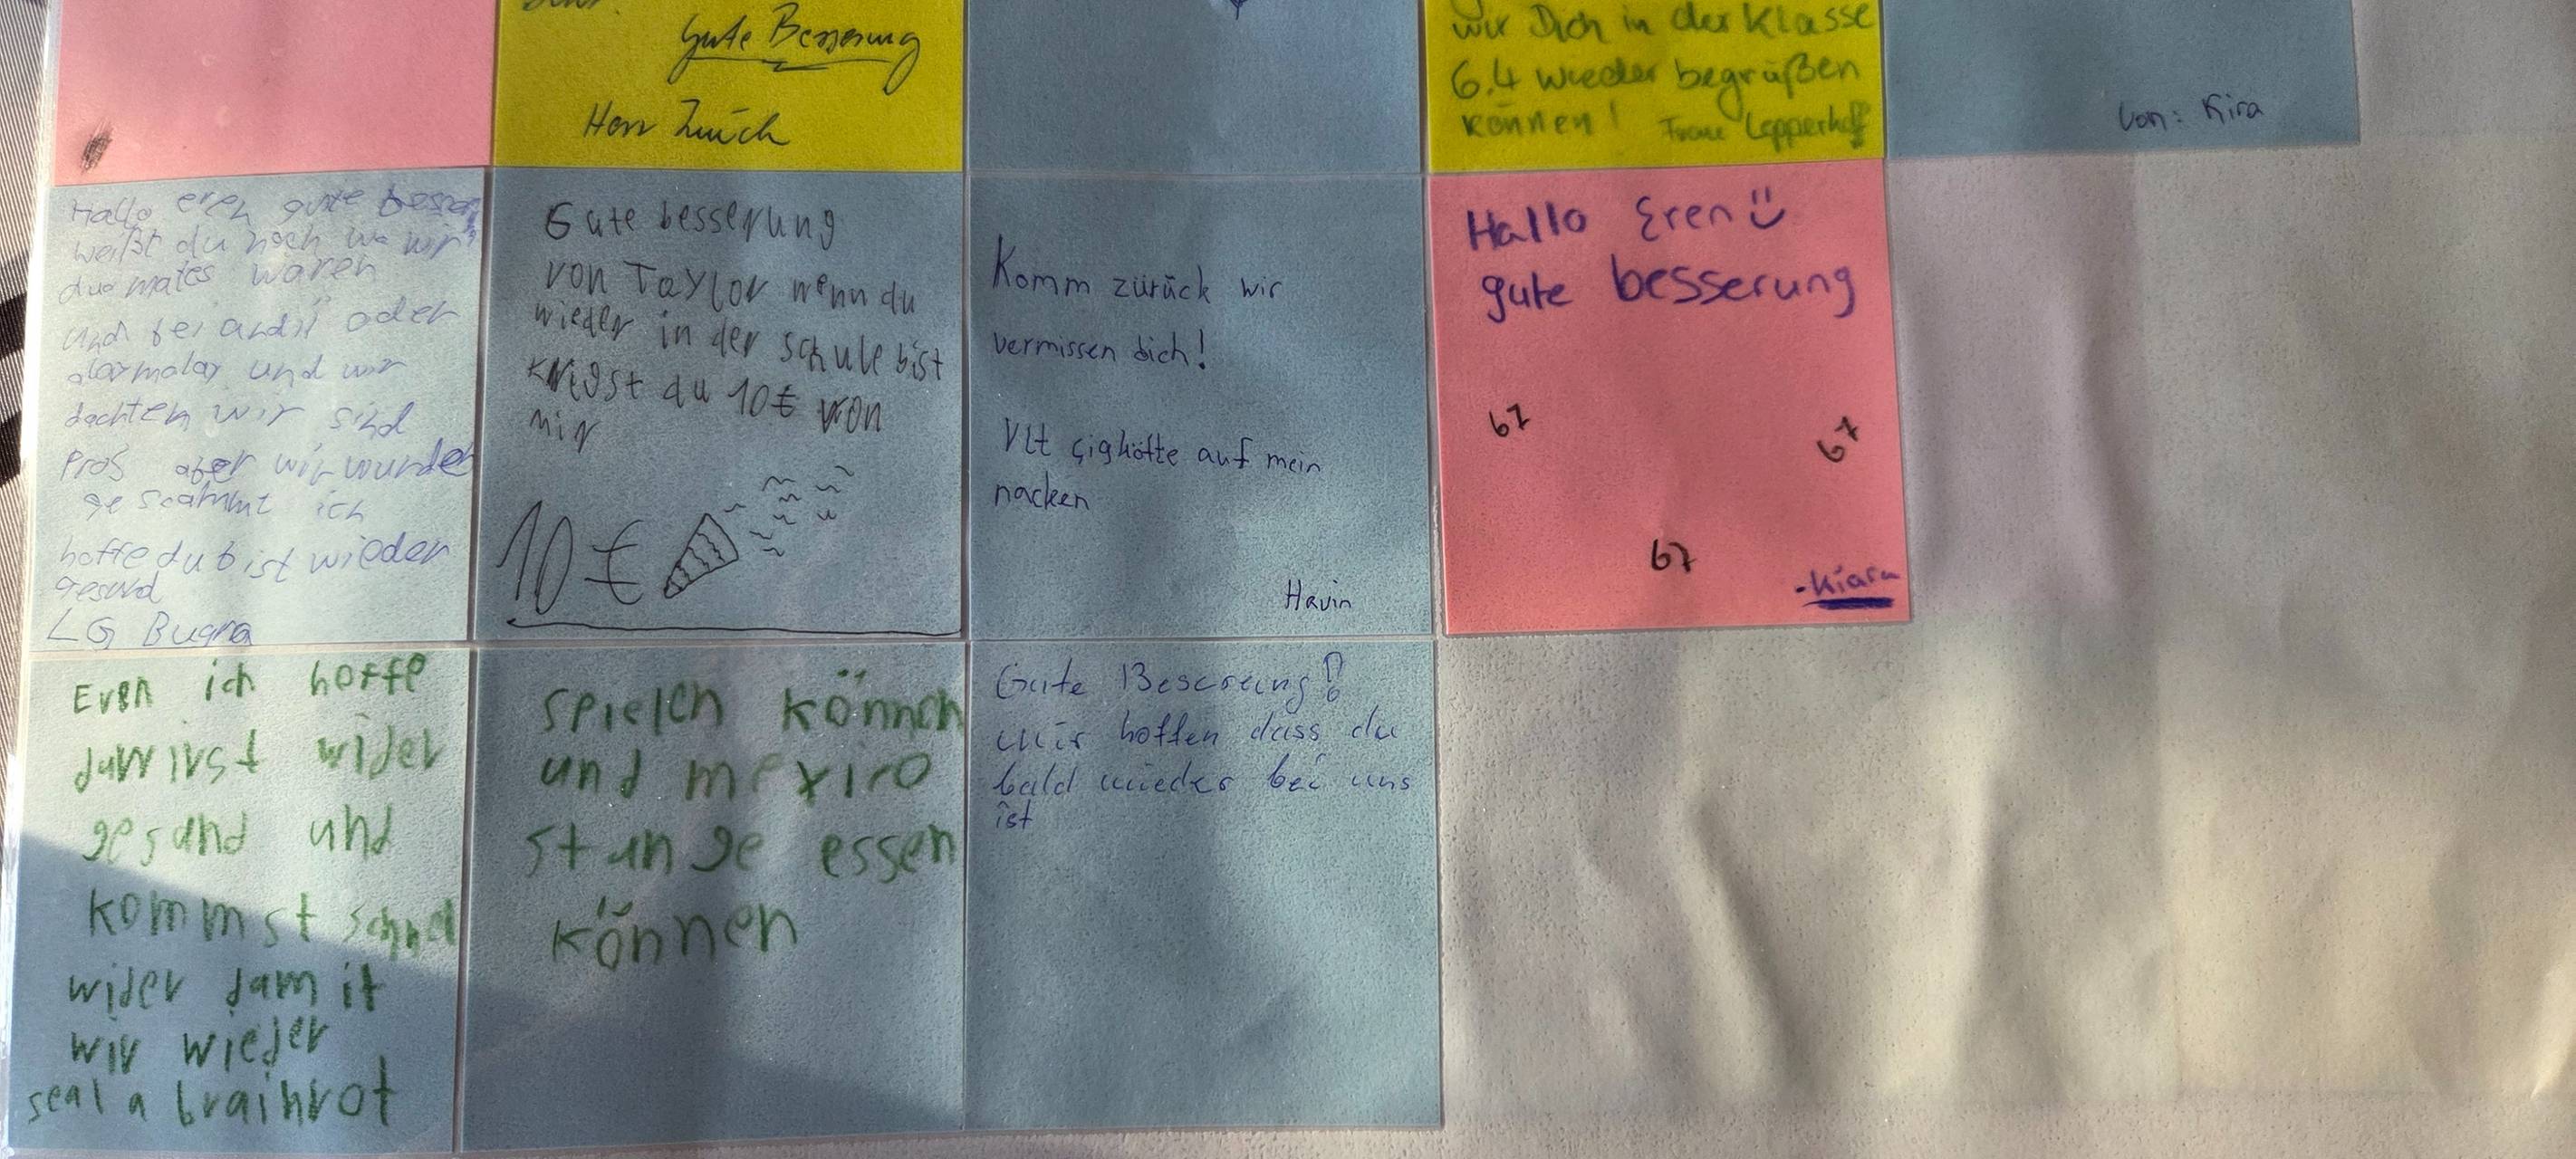 Gute Besserung
Herr Zurich
wir Dich in der Klasse
6.4 wieder begrüßen
können! Frau Lepperhoff
von: Kira
Hallo eren gute besserung
weißt du noch wo wir
duo mates waren
und bei andii oder
und wir
dachten wir sind
Pros aber wir wurden
gescammt ich
hoffe du bist wieder
gesund
LG Bugra
Gute besserung
von Taylor wenn du
wieder in der schule bist
krigst du 10€ von
mir
10€
Komm zürück wir
vermissen dich!
Vlt çighöfte auf mein
nacken
Havin
Hallo Eren
gute besserung
67
67
67
-Kiara
Eren ich hoffe
du wirst wider
gesund und
kommst schnel
wider damit
wir wieder
seal a brainrot
spielen können
und mexico
stange essen
können
Gute Besereung!
wir hoffen dass du
bald wieder bei uns
ist